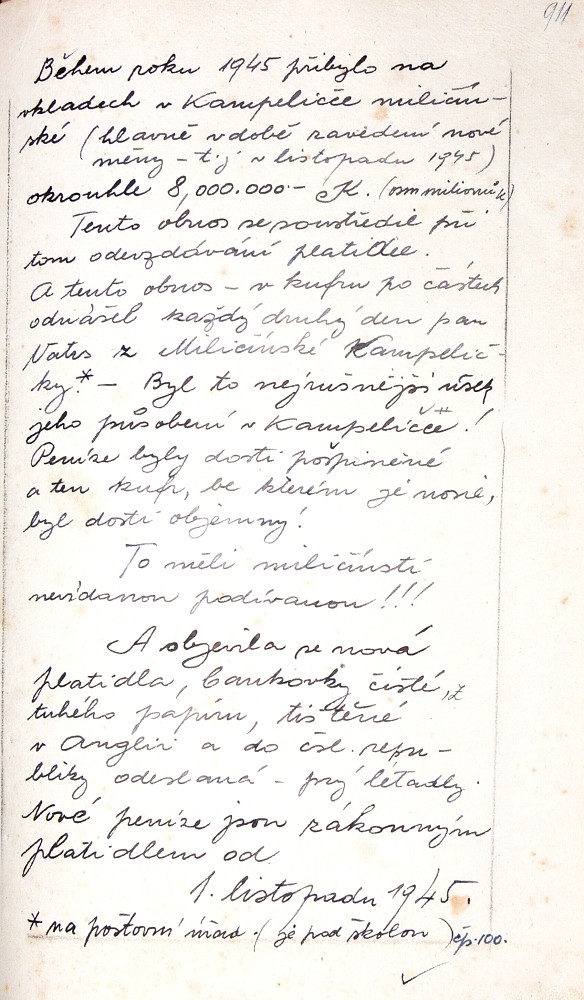 911
Během roku 1945 přibylo na
vkladech v Kampeličce miličín-
ské (hlavně v době zavedení nové
měny - t.j. v listopadu 1945)
okrouhle 8,000.000·- K. (osm milionů k)
Tento obnos se soustředil při
tom odevzdávání platidel.
A tento obnos - v kufru po částech
odnášel každý druhý den pan
z Miličínské Kampelič-
ky.* - Byl to nejrušnější úsek
jeho působení v Kampeličce!
Peníze byly dosti pošpiněné
a ten kufr, ve kterém je nosil,
byl dosti objemný!
To měli miličínstí
nevídanou podívanou!!!
A objevila se nová
platidla, bankovky čisté, z
tuhého papíru, tištěné
v Anglii a do čsl. repu-
bliky odeslaná - prý létadly.
Nové peníze jsou zákonným
platidlem od
1. listopadu 1945.
* na poštovní úřad. (je pod školou) čp. 100.